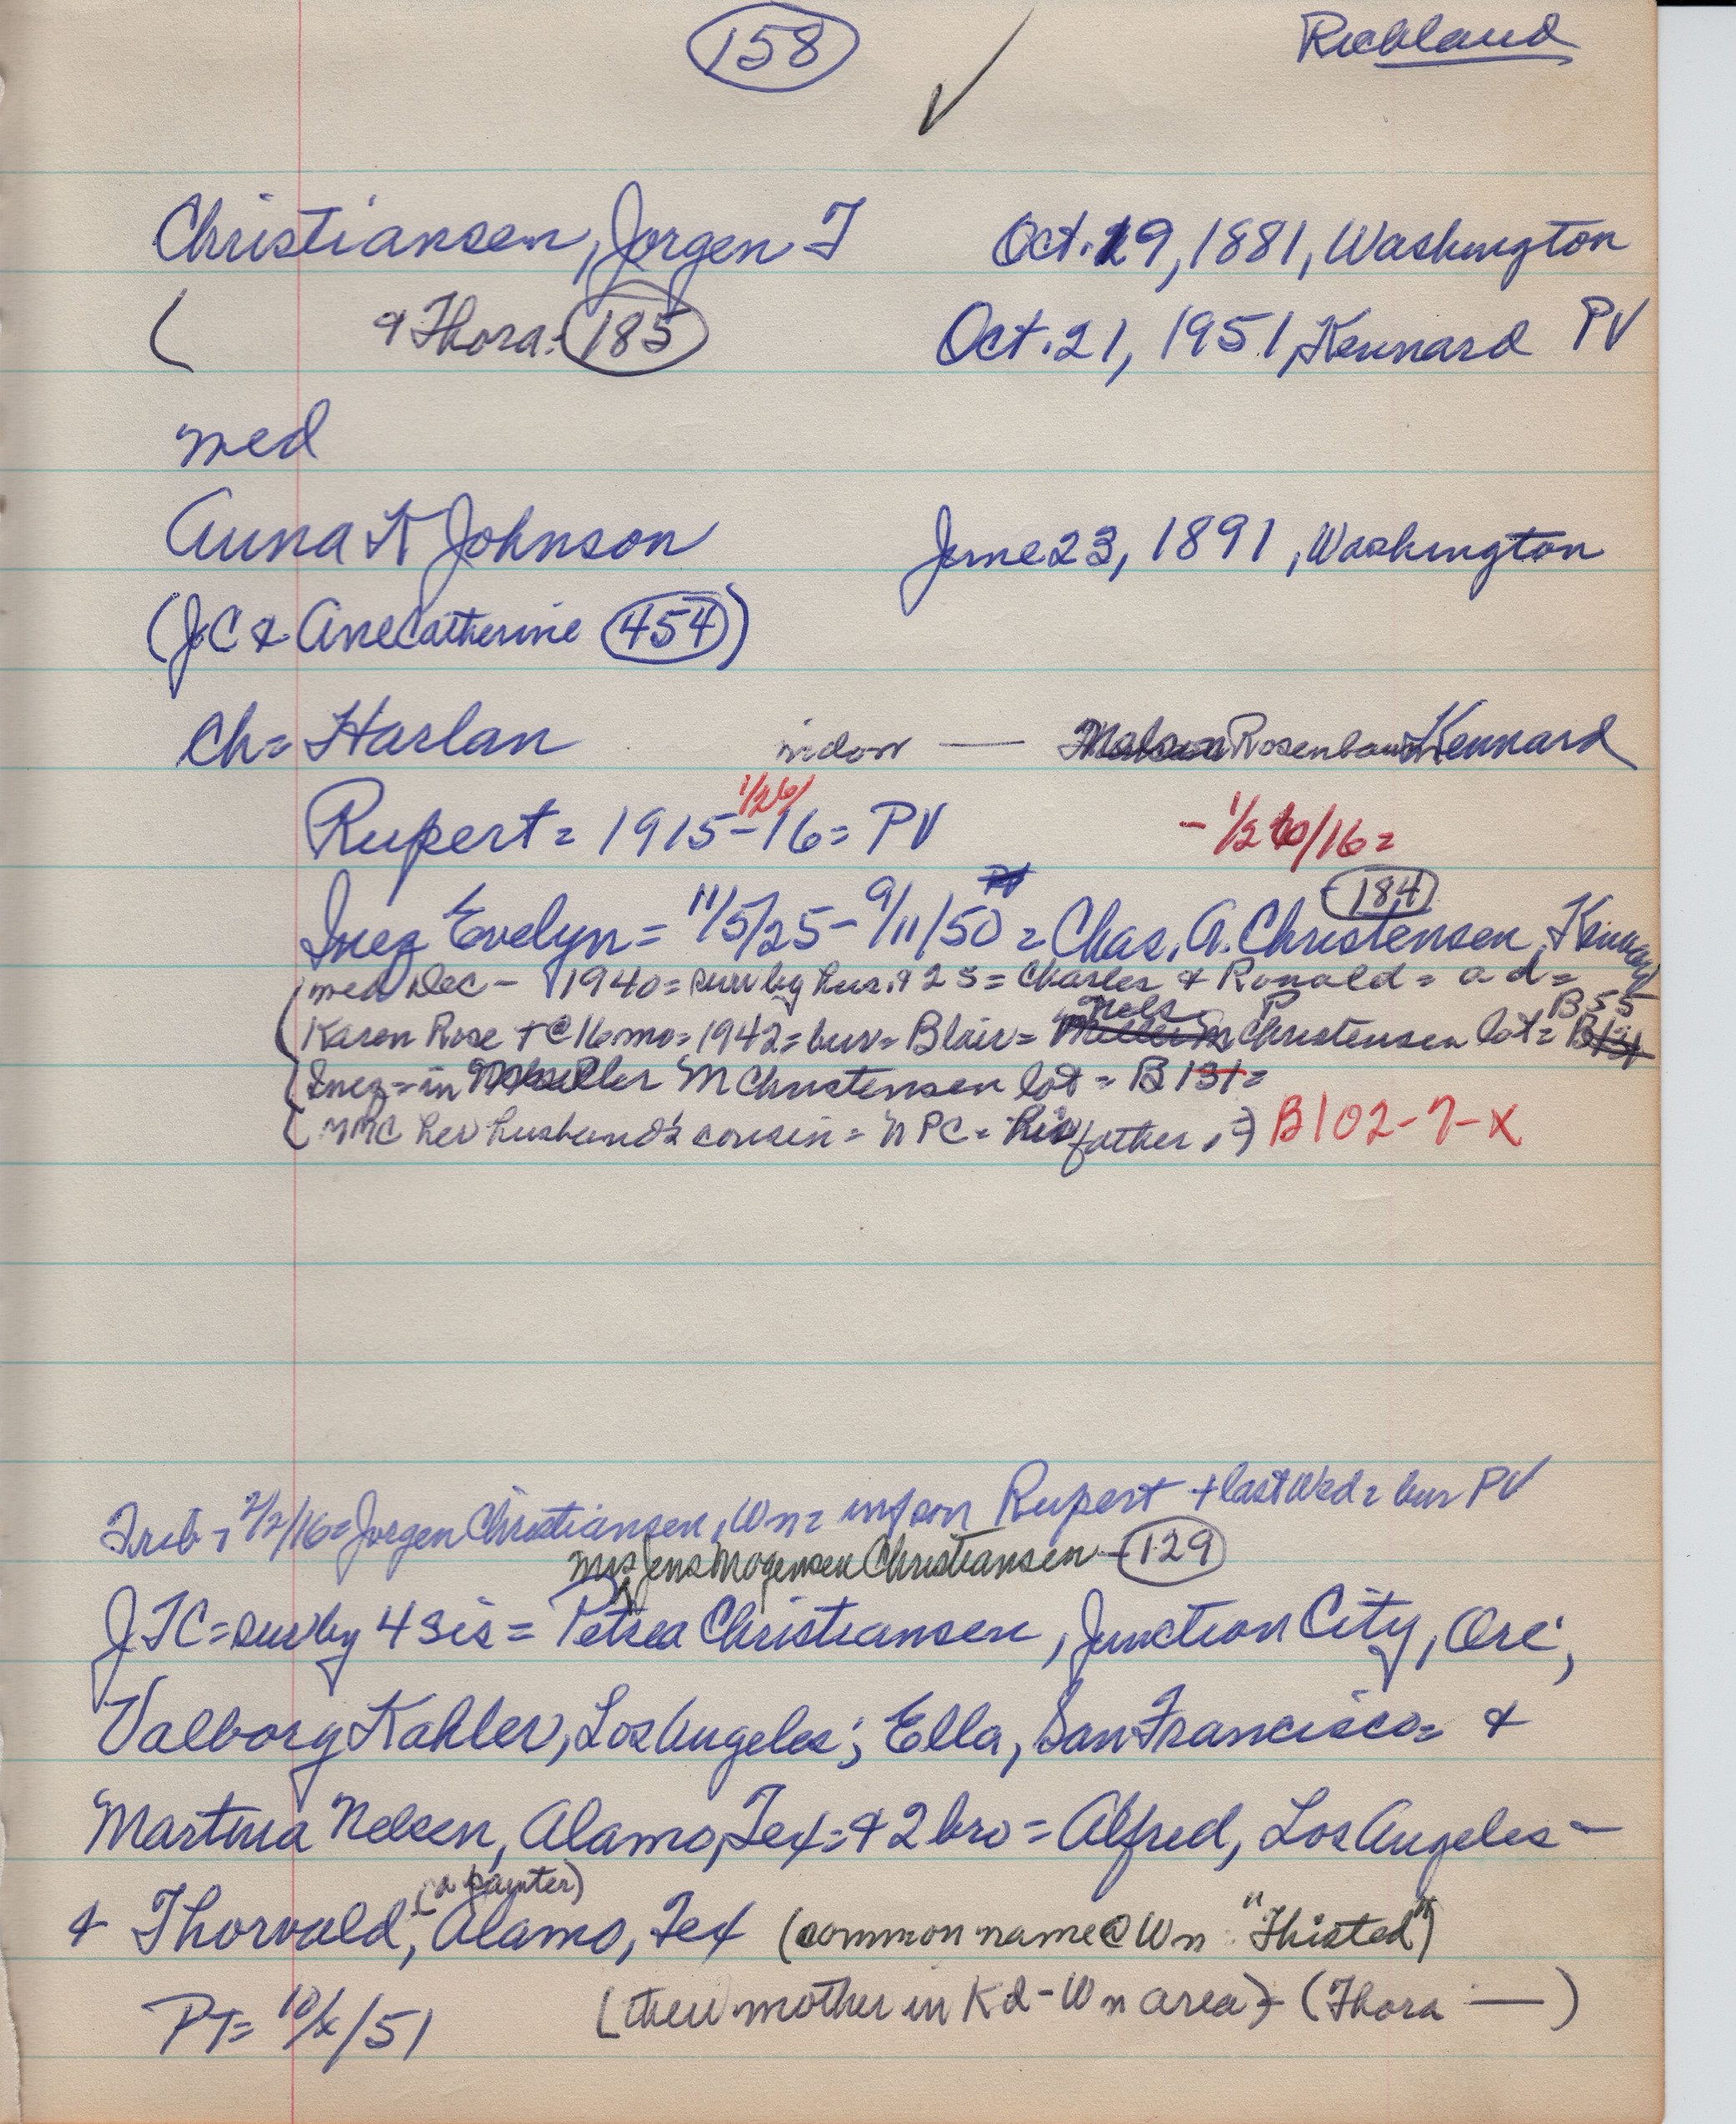 158 Richland
Christiansen, Jorgen T Oct. 29, 1881, Washington
( & Thora. 185 Oct. 21, 1951, Kennard PV
med
Anna K Johnson June 23, 1891, Washington
(JC & AneCatherine 454)
Ch= Harlan widow — Rosenbaum Kennard
1/26/
Rupert= 1915-16= PV - 1/26/16=
184
Inez Evelyn= 11/5/25-9/11/50 = Chas. A. Christensen, Kennard
(med Dec - 1940= surv by hus. & 2 s= Charles & Ronald= a d=
Nels P B55
Karen Rose + @ 16 mo= 1942= bur= Blair= Christensen lot=
Inez=in M Christensen lot = B131=
MMC her husband's cousin= NPC= his father,=) B102-7-X
Trib, 2/2/16= Jorgen Christiansen, Wn= inf son Rupert + last Wed= bur PV
Mrs Jens Mogensen Christiansen - 129
JTC= surv by 4 sis= Petrea Christiansen, Junction City, Ore,
Valborg Kahler, Los Angeles; Ella, San Francisco= &
Martina Nelsen, Alamo, Tex= & 2 bro= Alfred, Los Angeles -
(a painter)
& Thorvald, Alamo, Tex (common name @ Wn "Thisted")
PT= 10/x/51 (their mother in Kd-Wn area) - (Thora —)